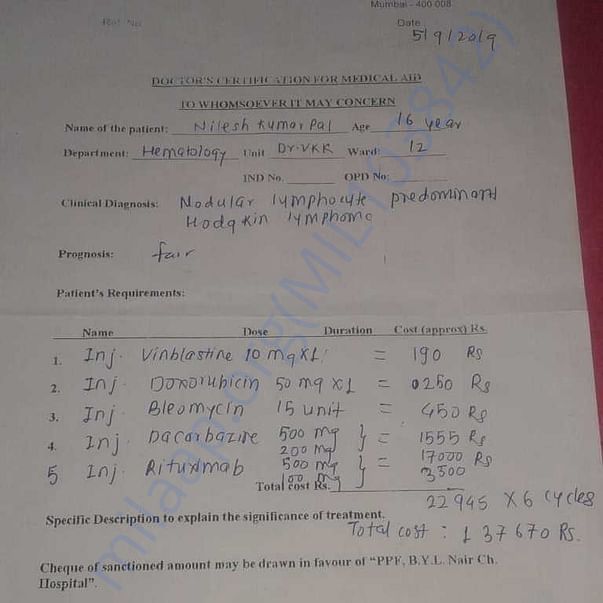 Mumbai - 400 008
Ref. No.
Date
5/9/2019
DOCTOR'S CERTIFICATION FOR MEDICAL AID
TO WHOMSOEVER IT MAY CONCERN
Name of the patient: Nilesh Kumar Pal Age 16 year
Department: Hematology Unit Dr.VKR Ward: 12
IND No. OPD No:
Clinical Diagnosis: Nodular lymphocyte predominant
Hodgkin lymphoma
Prognosis: fair
Patient's Requirements:
Name Dose Duration Cost (approx) Rs.
1. Inj. Vinblastine 10 mg X1 = 190 Rs
2. Inj. Doxorubicin 50 mg X1 = 0250 Rs
3. Inj. Bleomycin 15 unit = 450 Rs
4. Inj. Dacarbazine 500 mg } = 1555 Rs
200 mg
5 Inj. Rituximab 500 mg } = 17000 Rs
100 mg 3500
Total cost Rs. 22945 X 6 cycles
Specific Description to explain the significance of treatment.
Total cost : 137670 Rs.
Cheque of sanctioned amount may be drawn in favour of "PPF, B.Y.L. Nair Ch.
Hospital".